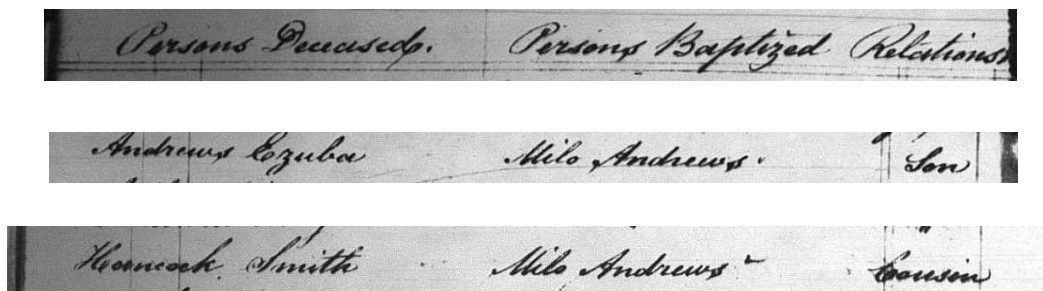 Persons Deceased. Persons Baptized Relations
Andrews Ezuba Milo Andrews. Son
Hancock Smith Milo Andrews Cousin